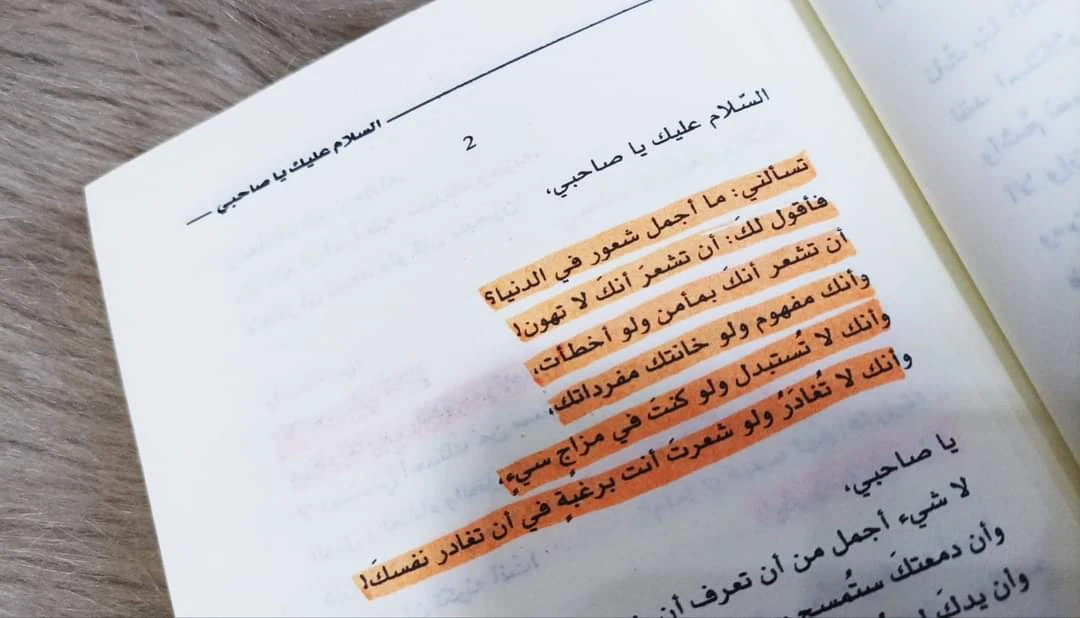 السلام عليك يا صاحبي
2
السّلام عليك يا صاحبي،
تسألني: ما أجمل شعور في الدنيا؟
فأقول لكَ: أن تشعرَ أنكَ لا تهون!
أن تشعر أنكَ بمأمن ولو أخطأت،
وأنك مفهوم ولو خانتك مفرداتك،
وأنك لا تُستبدل ولو كنتَ في مزاجٍ سيءٍ،
وأنك لا تُغادَرُ ولو شعرتَ أنت برغبةٍ في أن تغادر نفسكَ!
يا صاحبي،
لا شيء أجمل من أن تعرف أن
وأن دمعتكَ ستُمسح
وأن يدكَ